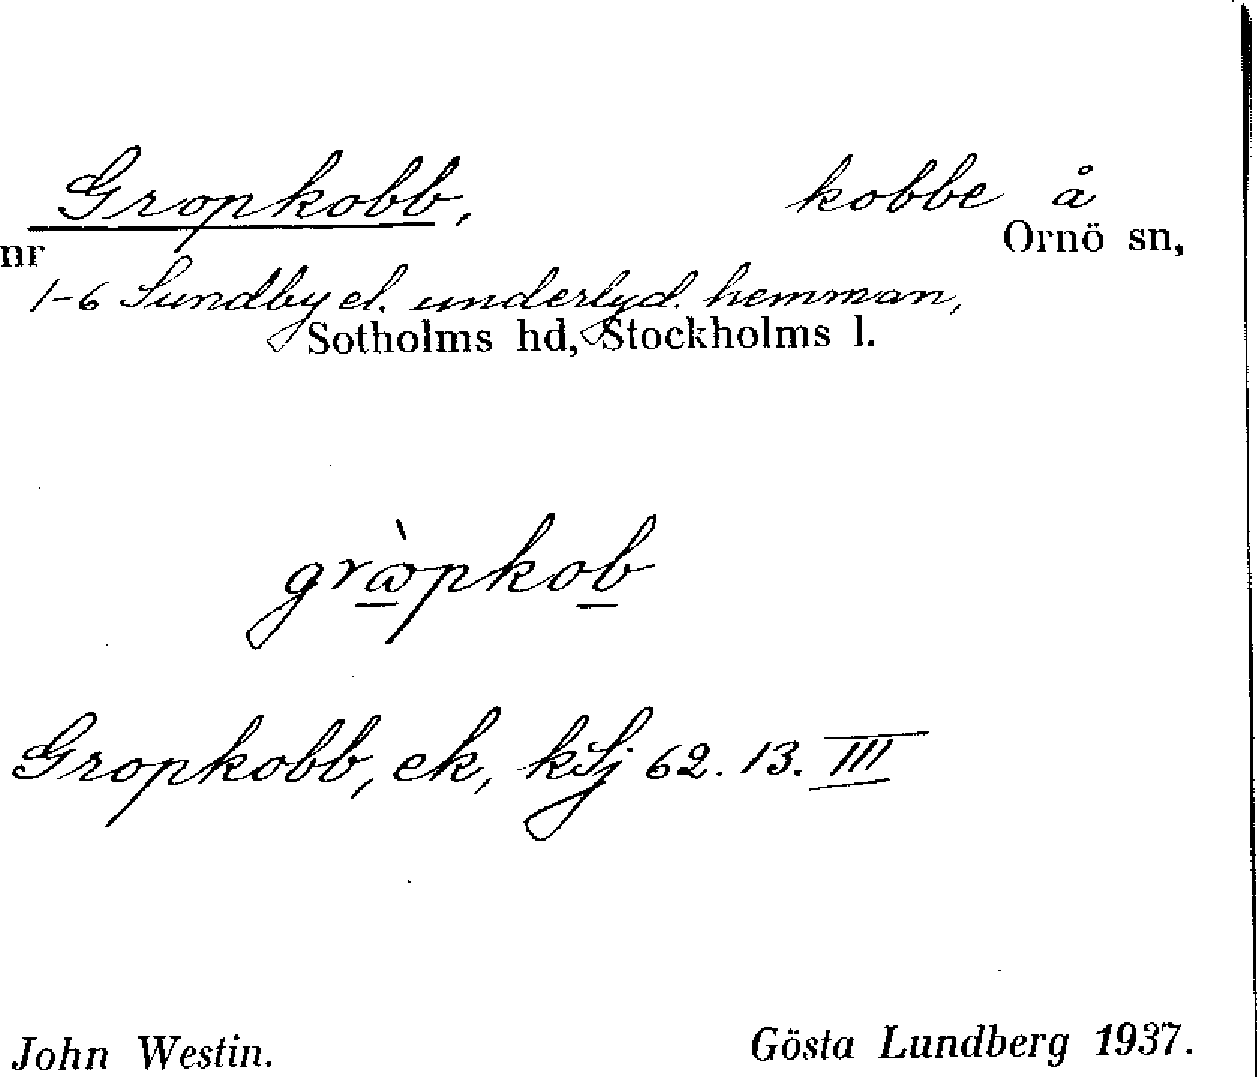 Gropkobb, kobbe å
nr Ornö sn,
1-6 Sundby el. underlyd. hemman,
Sotholms hd, Stockholms l.
grɷ̀pkob
Gropkobb, ek, kSj 62. 13. III
John Westin. Gösta Lundberg 1937.